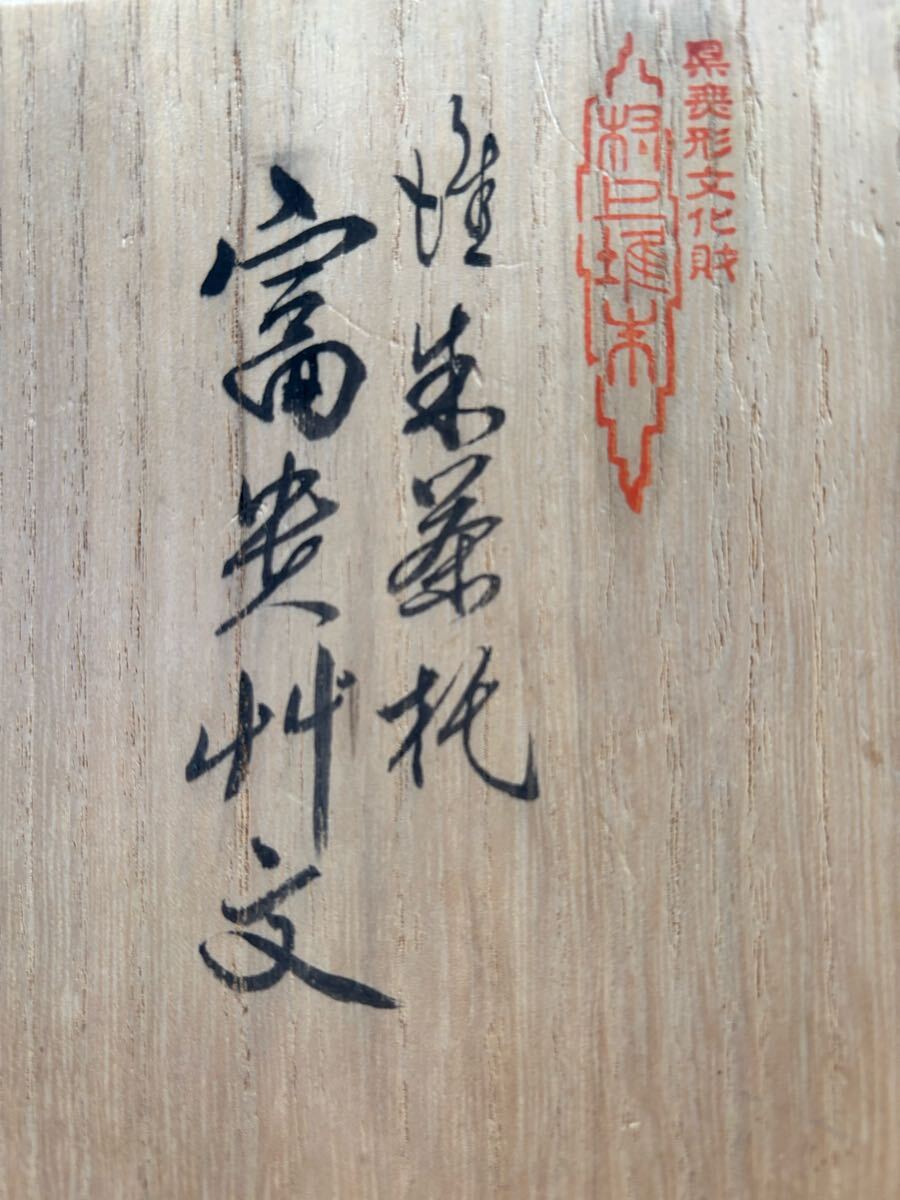 県無形文化財
村上堆朱
堆朱茶托
富貴艸文